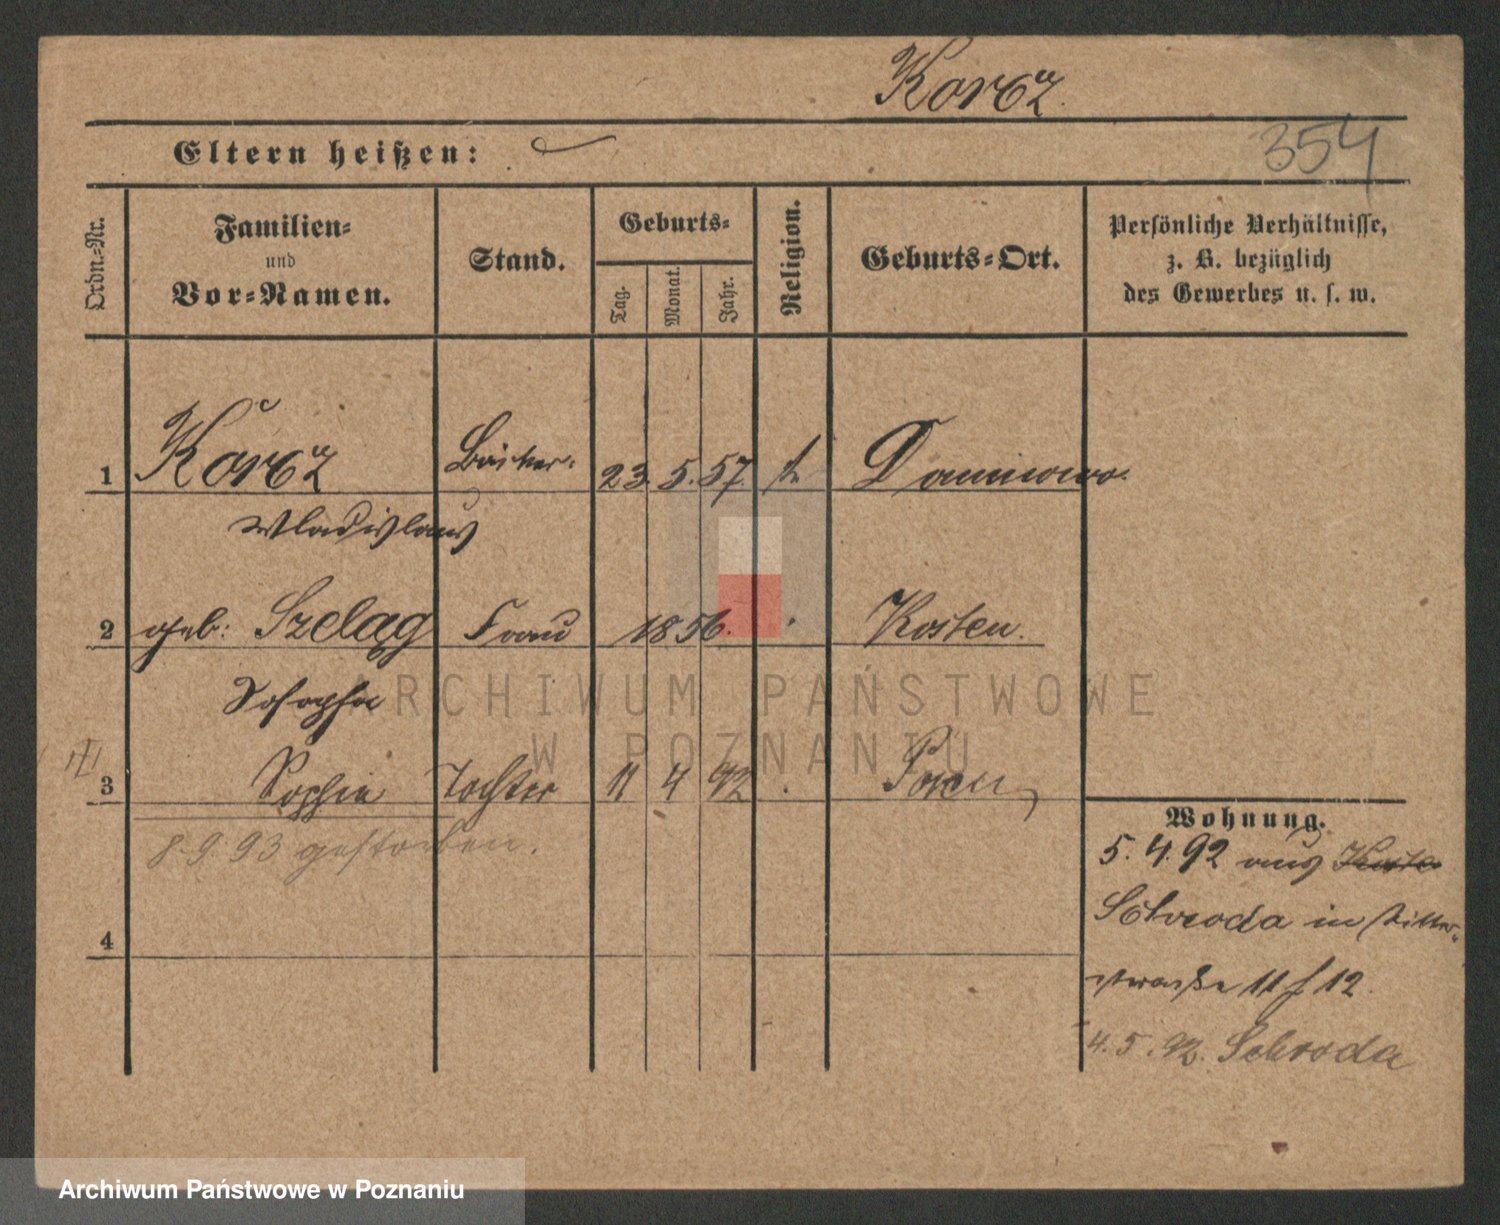 Korcz.
354
Eltern heißen:
Ordn.-Nr.
Familien- und Vor-Namen.
Stand.
Geburts-
Tag.
Monat.
Jahr.
Religion.
Geburts-Ort.
Persönliche Verhältnisse,
z. B. bezüglich
des Gewerbes u. s. w.
1 Korcz Bäcker 23. 5. 57. k. Danniowo.
Wladislaus
2 geb: Szeląg Frau 1856. Kosten.
Josepha
3 Sophie Tochter 11 4 92 . Posen
8 9 93 gestorben.
4
Wohnung.
5. 4. 92 aus
Schroda in Ritter-
strasse 11/12.
4. 5. 92. Schroda
ARCHIWUM PAŃSTWOWE
W POZNANIU
Archiwum Państwowe w Poznaniu